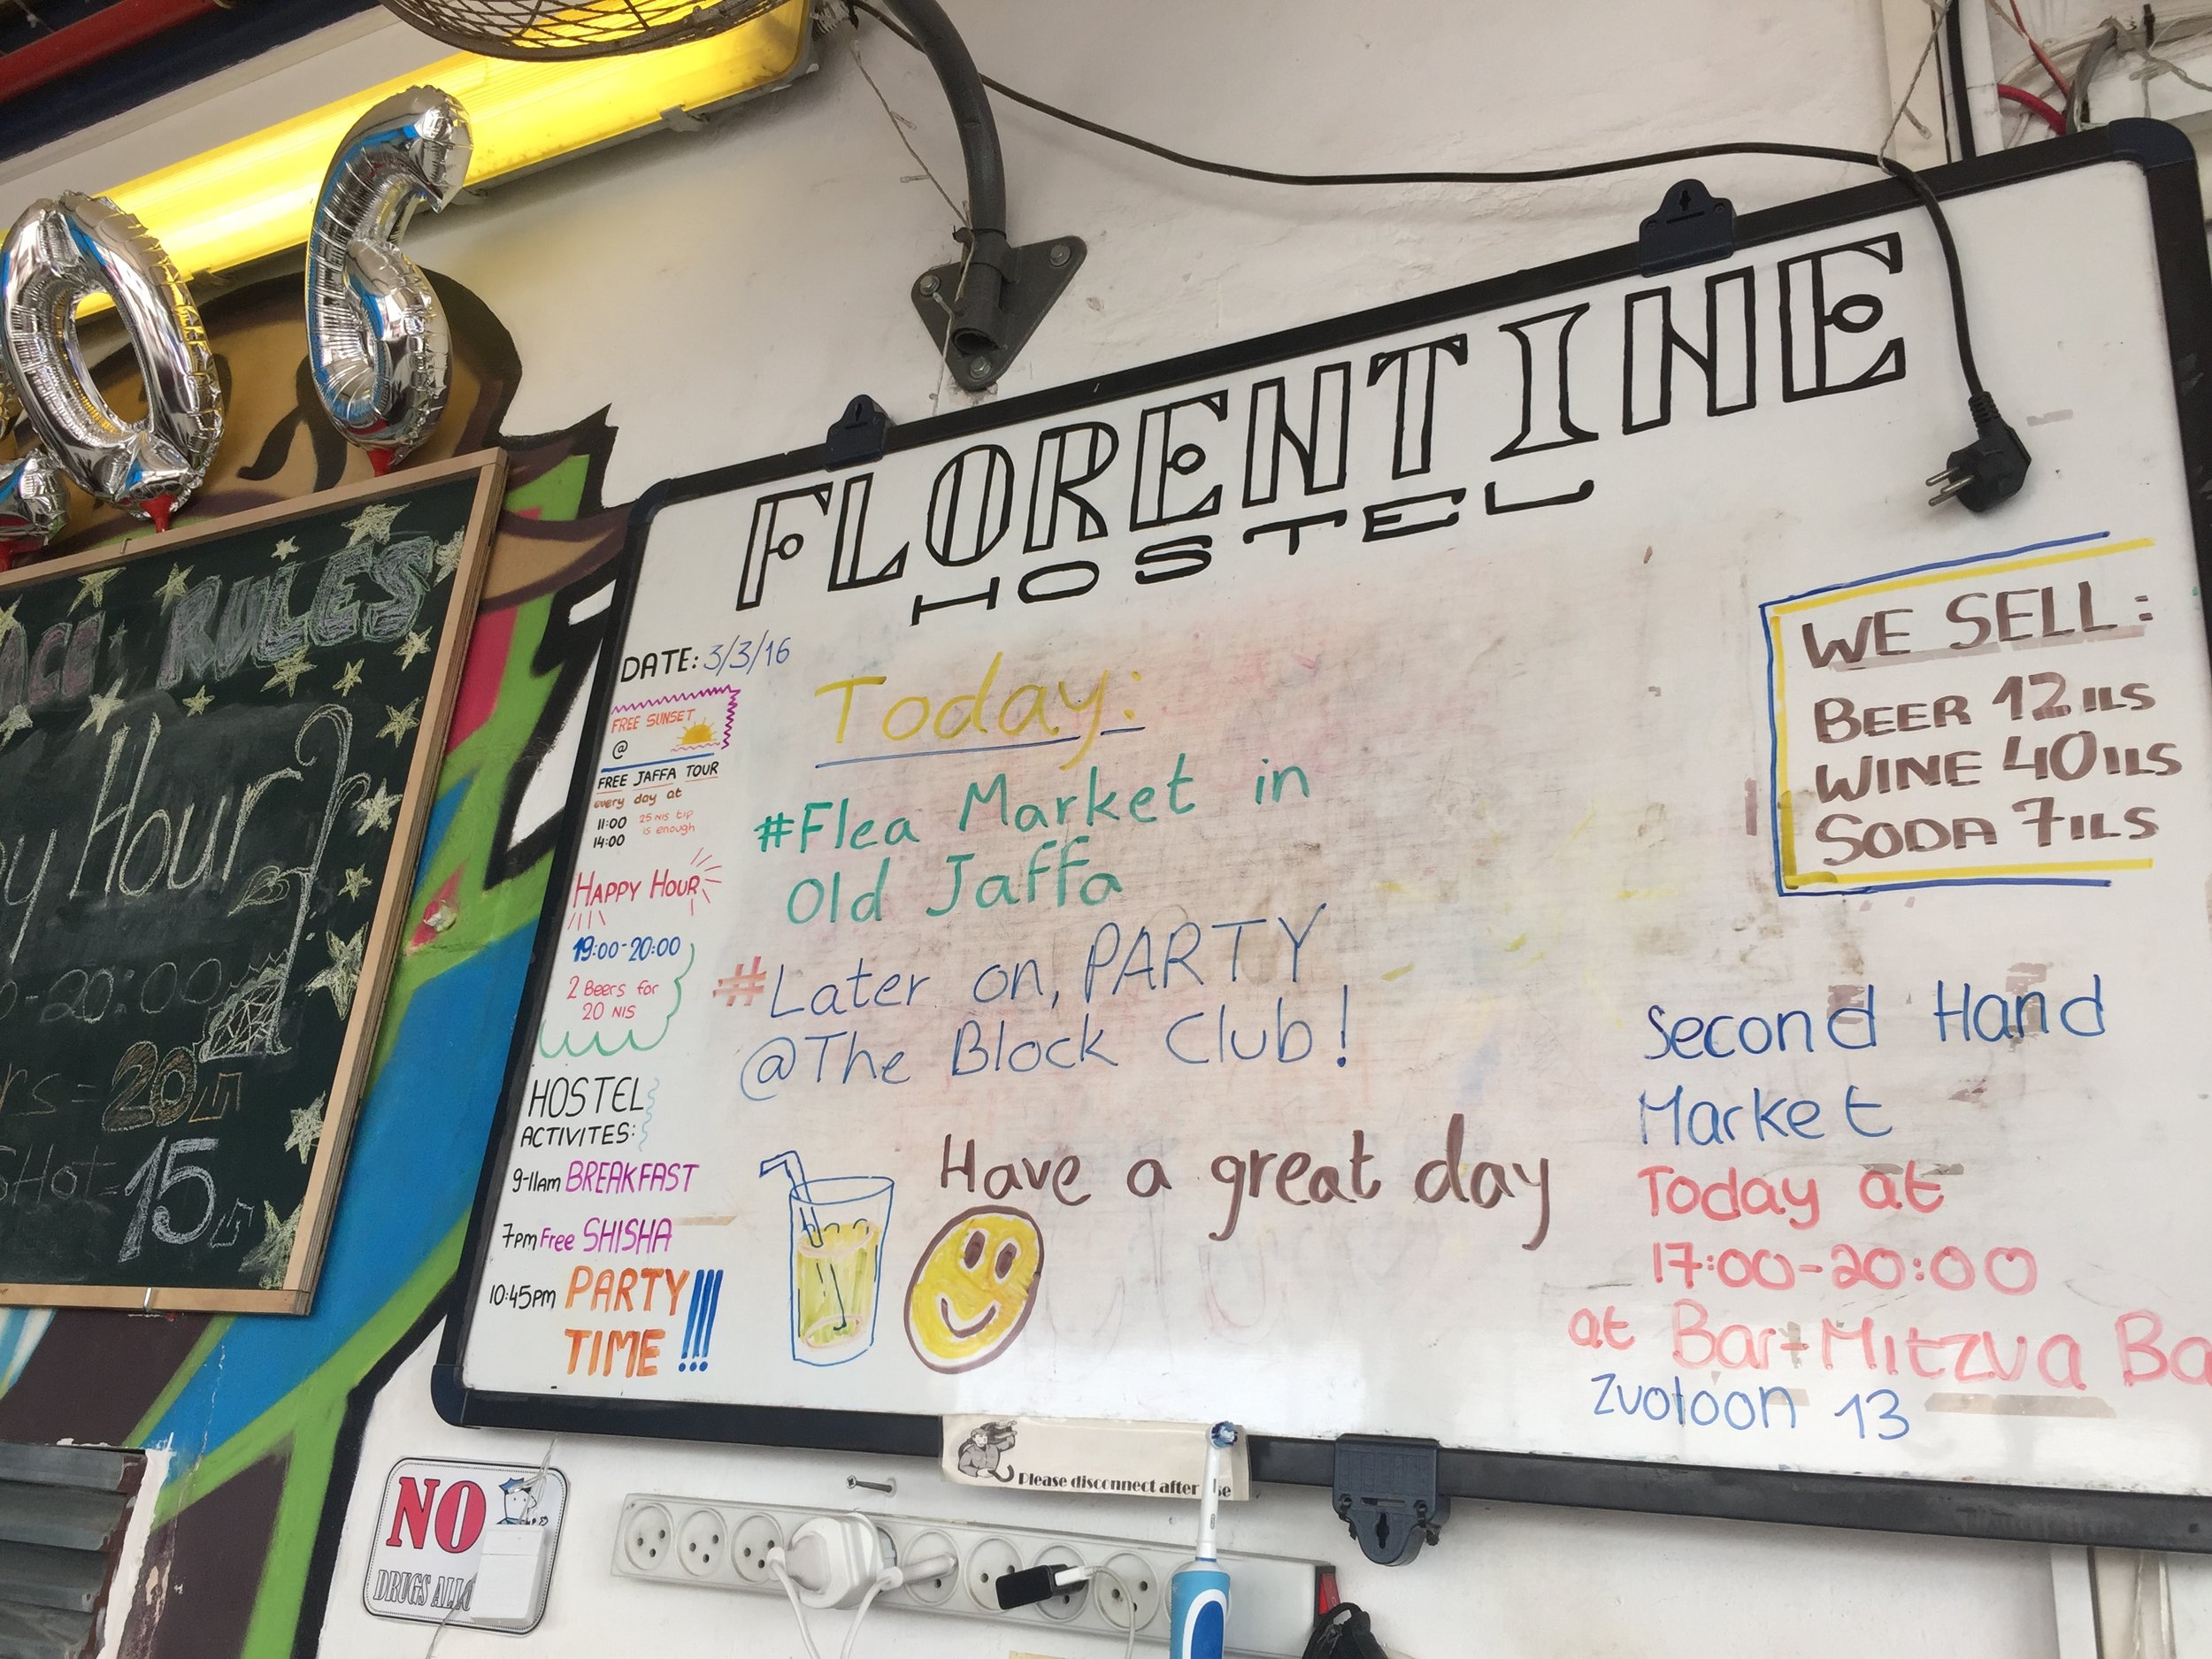 06
RULES
Hour
-20:00
= 20
SHOT = 15
FLORENTINE
HOSTEL
DATE: 3/3/16
FREE SUNSET
@
FREE JAFFA TOUR
every day at
11:00
14:00
25 NIS tip
is enough
HAPPY HOUR
19:00-20:00
2 Beers for
20 NIS
HOSTEL
ACTIVITES:
9-11am BREAKFAST
7pm Free SHISHA
10:45pm PARTY
TIME !!!
Today:
#Flea Market in
Old Jaffa
#Later on, PARTY
@The Block Club!
Have a great day
WE SELL:
BEER 12 ILS
WINE 40 ILS
SODA 7 ILS
Second Hand
Market
Today at
17:00-20:00
at Bar-Mitzva Ba
Zvoloon 13
Please disconnect after
NO
DRUGS